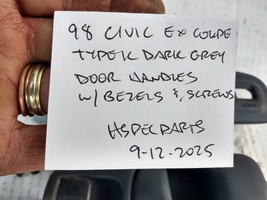 98 CIVIC EX COUPE
TYPE IC DARK GREY
DOOR HANDLES
W/ BEZELS & SCREWS
HSPECPARTS
9-12-2025